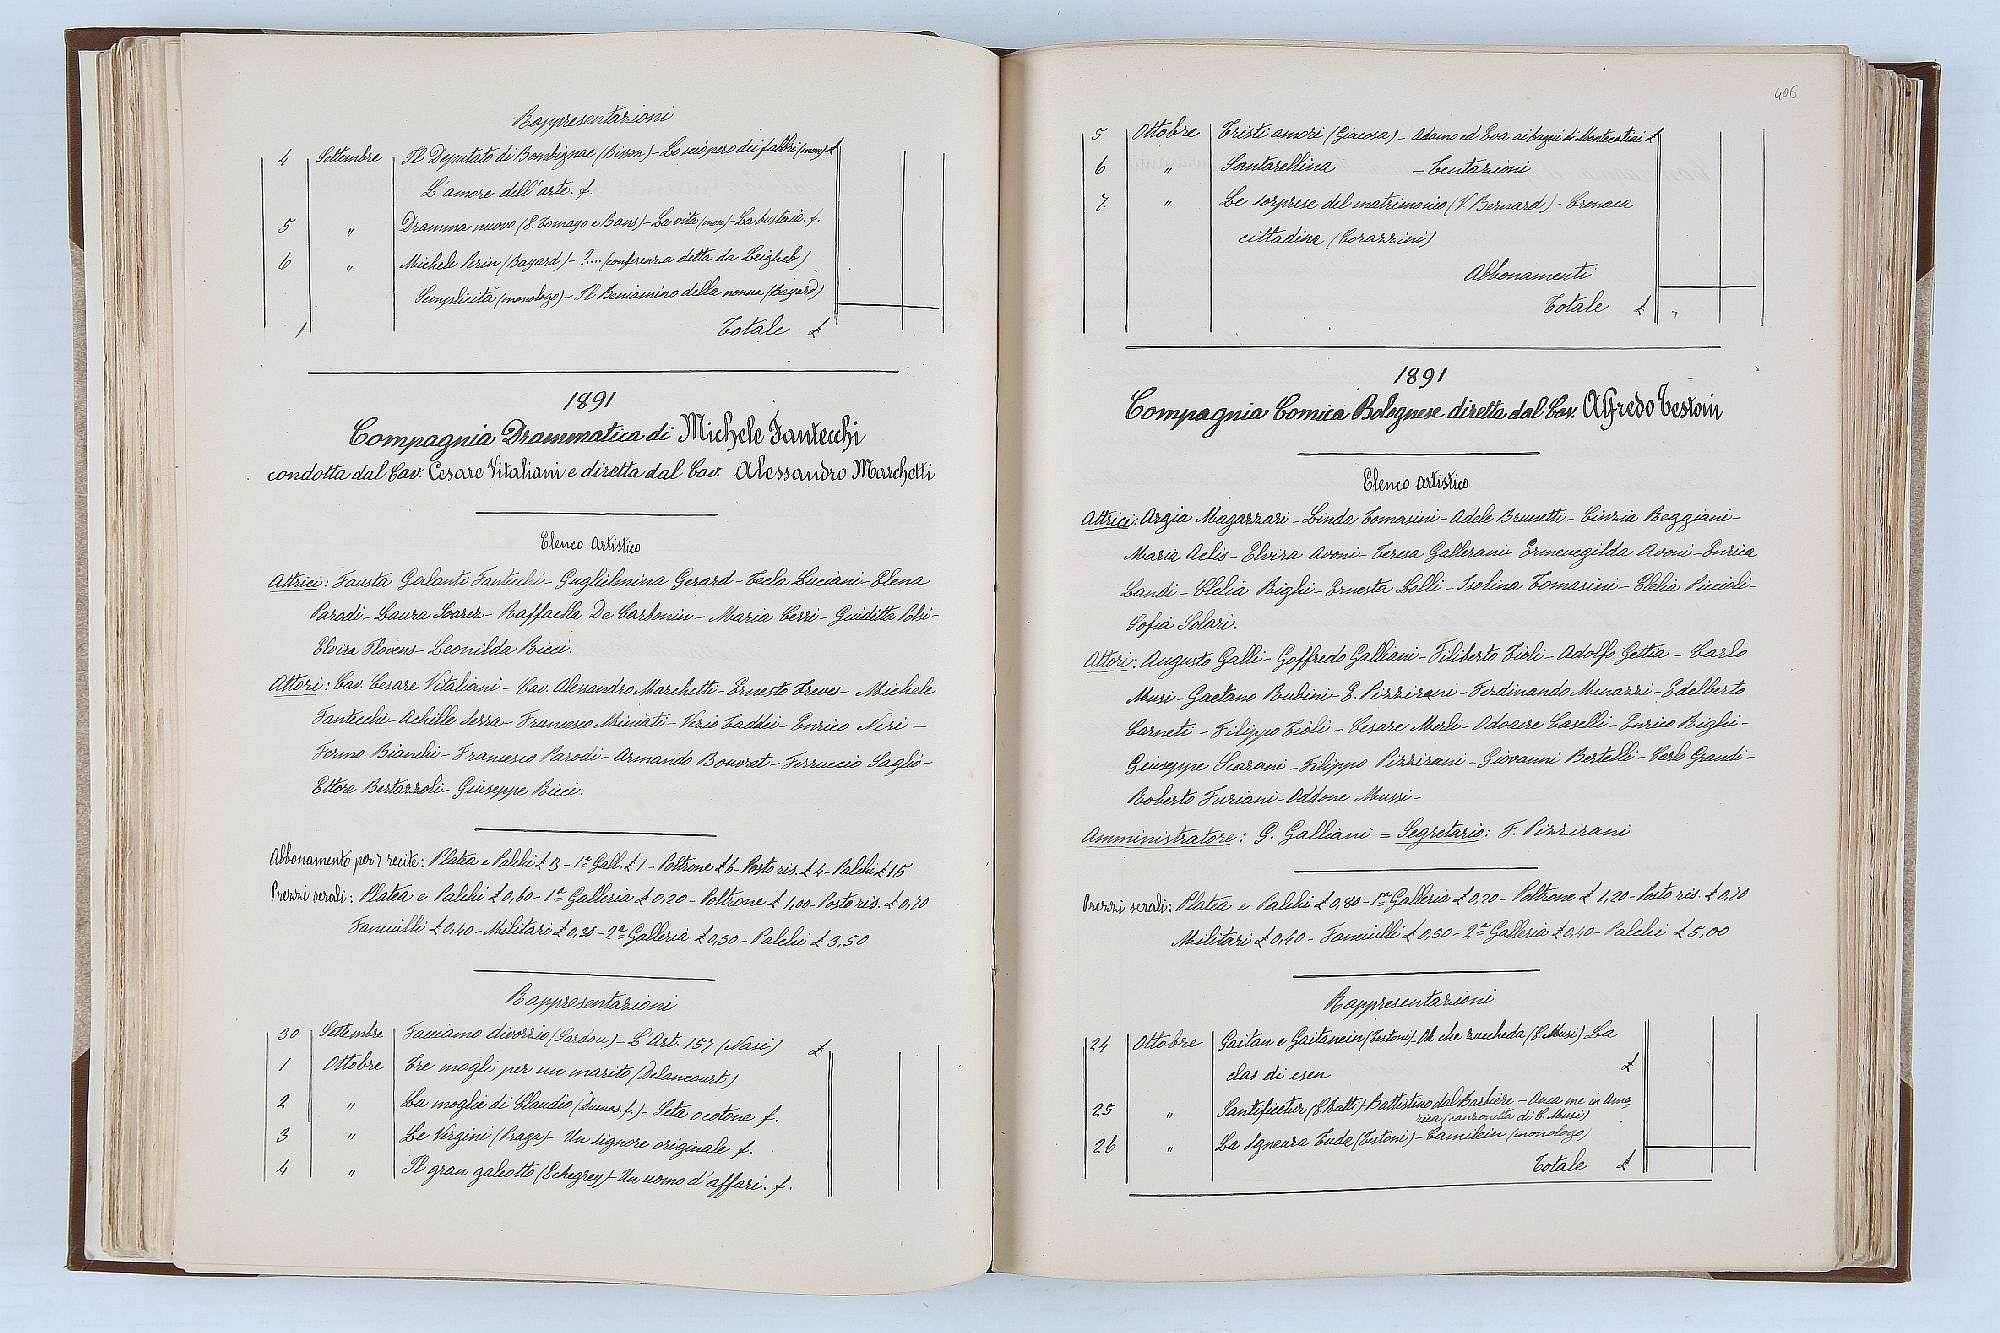 Rappresentazioni
4 Settembre Il Deputato di Bombignac (Bisson) - Lo sciopero dei fabbri (mon.) £
L'amore dell'arte. f.
5 " Dramma nuovo (E. Tamayo e Baus) - La vita (mon.) - La busteria. f.
6 " Michele Perin (Bayard) - ?.... (conferenza detta da Leigheb)
Semplicità (monologo) - Il Beniamino della nonna (Bayard)
Totale £
1891
Compagnia Drammatica di Michele Fantecchi
condotta dal Cav. Cesare Vitaliani e diretta dal Cav. Alessandro Marchetti
Elenco Artistico
Attrici: Fausta Galanti Fantecchi - Guglielmina Gerard - Tecla Luciani - Elena
Parodi - Laura Soarez - Raffaella De Carbonin - Maria Cerri - Giuditta Polri -
Elvira Plovens - Leonilda Ricci.
Attori: Cav. Cesare Vitaliani - Cav. Alessandro Marchetti - Ernesto Treves - Michele
Fantecchi - Achille Serra - Francesco Miniati - Vezio Taddei - Enrico Neri -
Fermo Bianchi - Francesco Parodi - Armando Bouvret - Ferruccio Saglio -
Ettore Bertazzoli - Giuseppe Ricci.
Abbonamento per 7 recite: Platea e Palchi £ 3 - 1ª Gall. £ 1 - Poltrone £ 6 - Posto ris. £ 4 - Palchi £ 15
Prezzi serali: Platea e Palchi £ 0,60 - 1ª Galleria £ 0,20 - Poltrone £ 1,00 - Posto ris. £ 0,70
Fanciulli £ 0,40 - Militari £ 0,35 - 2ª Galleria £ 0,30 - Palchi £ 3,50
Rappresentazioni
30 Settembre Facciamo divorzio (Sardou) - L'Art. 157 (Nasi) £
1 Ottobre Tre mogli per un marito (Delancourt)
2 " La moglie di Claudio (Dumas f.) - Seta o cotone f.
3 " Le Vergini (Praga) - Un signore originale f.
4 " Il gran galeotto (Echegrey) - Un uomo d'affari. f.
406
5 Ottobre Tristi amori (Giacosa) - Adamo ed Eva ai bagni di Montecatini £
6 " Santarellina - Tentazioni
7 " Le sorprese del matrimonio (V. Bernard) - Cronaca
cittadina (Corazzini)
Abbonamenti
Totale £ "
1891
Compagnia Comica Bolognese diretta dal Cav. Alfredo Testoin
Elenco Artistico
Attrici: Argia Magazzari - Linda Tomasini - Adele Brunetti - Cinzia Reggiani -
Maria Aelis - Elvira Avoni - Teresa Gallerani Ermenegilda Avoni - Enrica
Landi - Clelia Righi - Ernesta Lolli - Isolina Tomasini - Clelia Piccioli -
Sofia Solari.
Attori: Augusto Galli - Goffredo Galliani - Filiberto Tioli - Adolfo Gettia - Carlo
Musi - Gaetano Rubini - E. Pizzirani - Ferdinando Menazzi - Edelberto
Carneti - Filippo Tioli - Cesare Merlo - Odoacre Caselli - Enrico Righi -
Giuseppe Scarani - Filippo Pizzirani - Giovanni Bertelli - Carlo Grandi -
Roberto Furiani - Oddone Mussi -
Amministratore: G. Galliani = Segretario: F. Pizzirani
Prezzi serali: Platea e Palchi £ 0,80 - 1ª Galleria £ 0,20 - Poltrone £ 1,20 - Posto ris. £ 0,70
Militari £ 0,40 - Fanciulli £ 0,50 - 2ª Galleria £ 0,40 - Palchi £ 5,00
Rappresentazioni
24 Ottobre Gaitan e Gaitanein (Testoni) - Oh che zuccheda (C. Musi) La
clas di esen £
25 " Santificetur (C. Ratti) Battistino dal Barbiere - Anca me in Ame-
rica (canzonetta di C. Musi)
26 " La Sgneura Tuda (Testoni) - Camilein (monologo)
Totale £